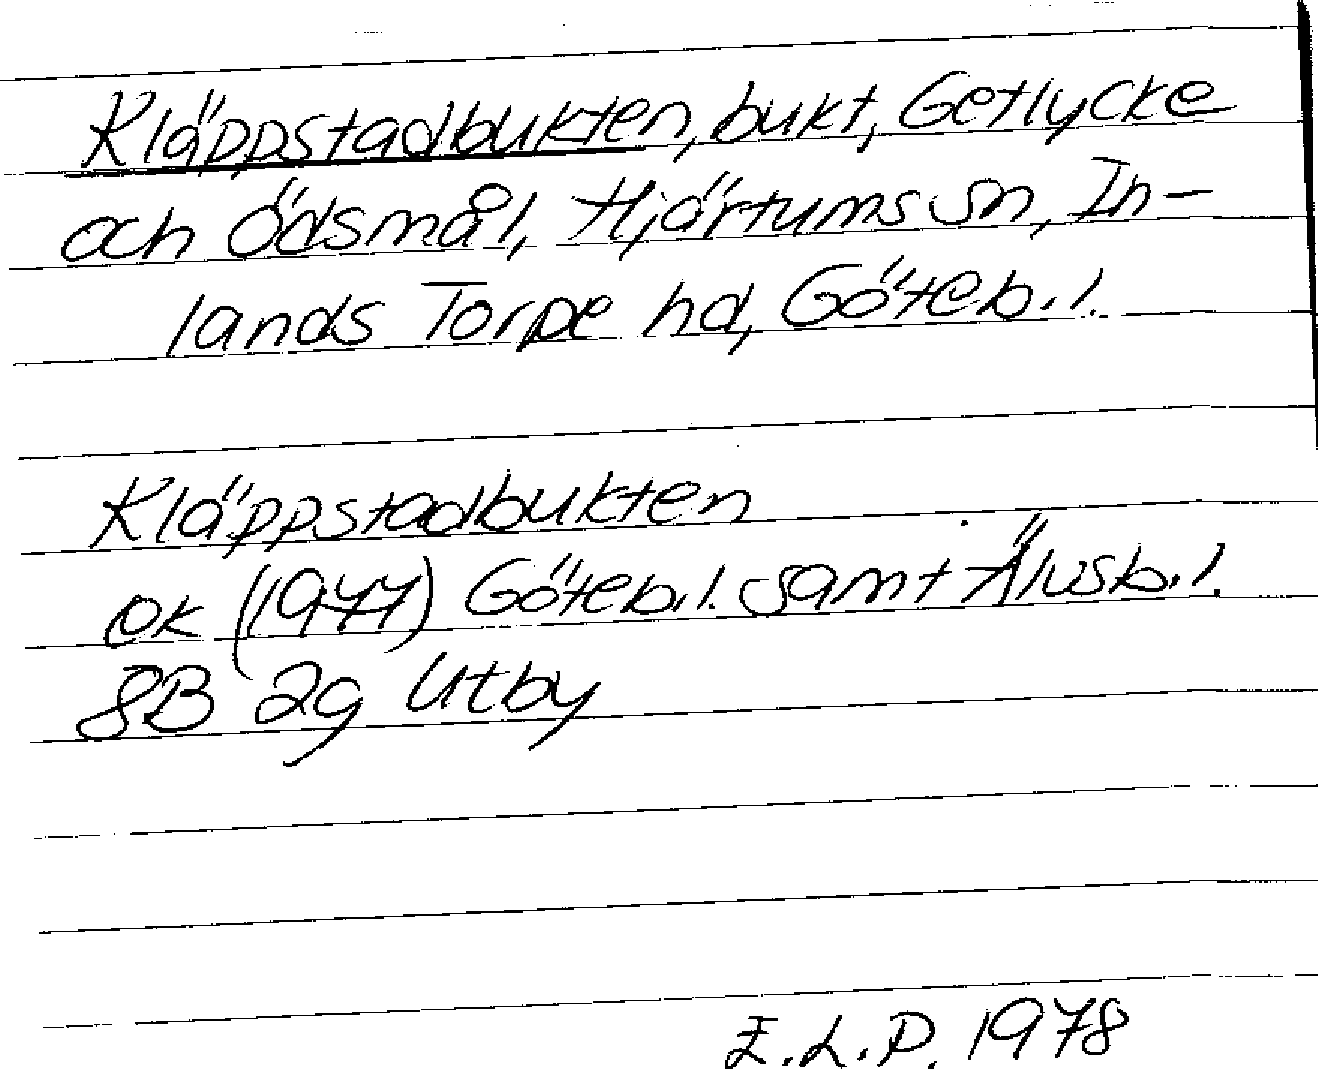 Kläppstadbukten, bukt, Getlycke
och Ödsmål, Hjärtums sn, In-
lands Torpe hd, Göteb.l.
Kläppstadbukten
ek (1977) Göteb.l. samt Älvsb.l.
8B 2g Utby
E.L.P. 1978